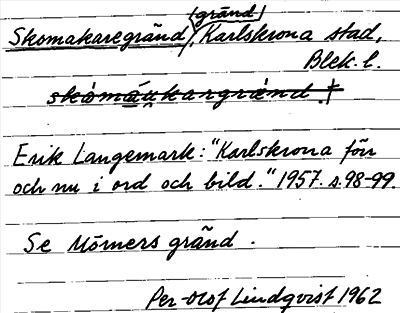 (gränd)
Skomakaregränd, Karlskrona stad,
Blek. l.
skòmǡu̠kargrànd. †
Erik Langemark: "Karlskrona förr
och nu i ord och bild." 1957. s. 98-99.
Se Mörners gränd.
Per-Olof Lindqvist 1962